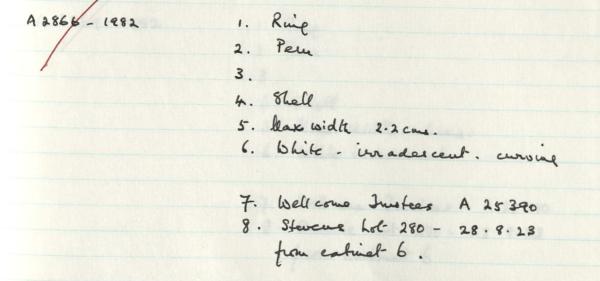 A 2866 - 1982
1. Ring
2. Peru
3.
4. Shell
5. Max width 2.2 cms.
6. White - irradescent. curving
7. Wellcome Trustees A 25390
8. Stevens Lot 280 - 28.8.23
from cabinet 6.